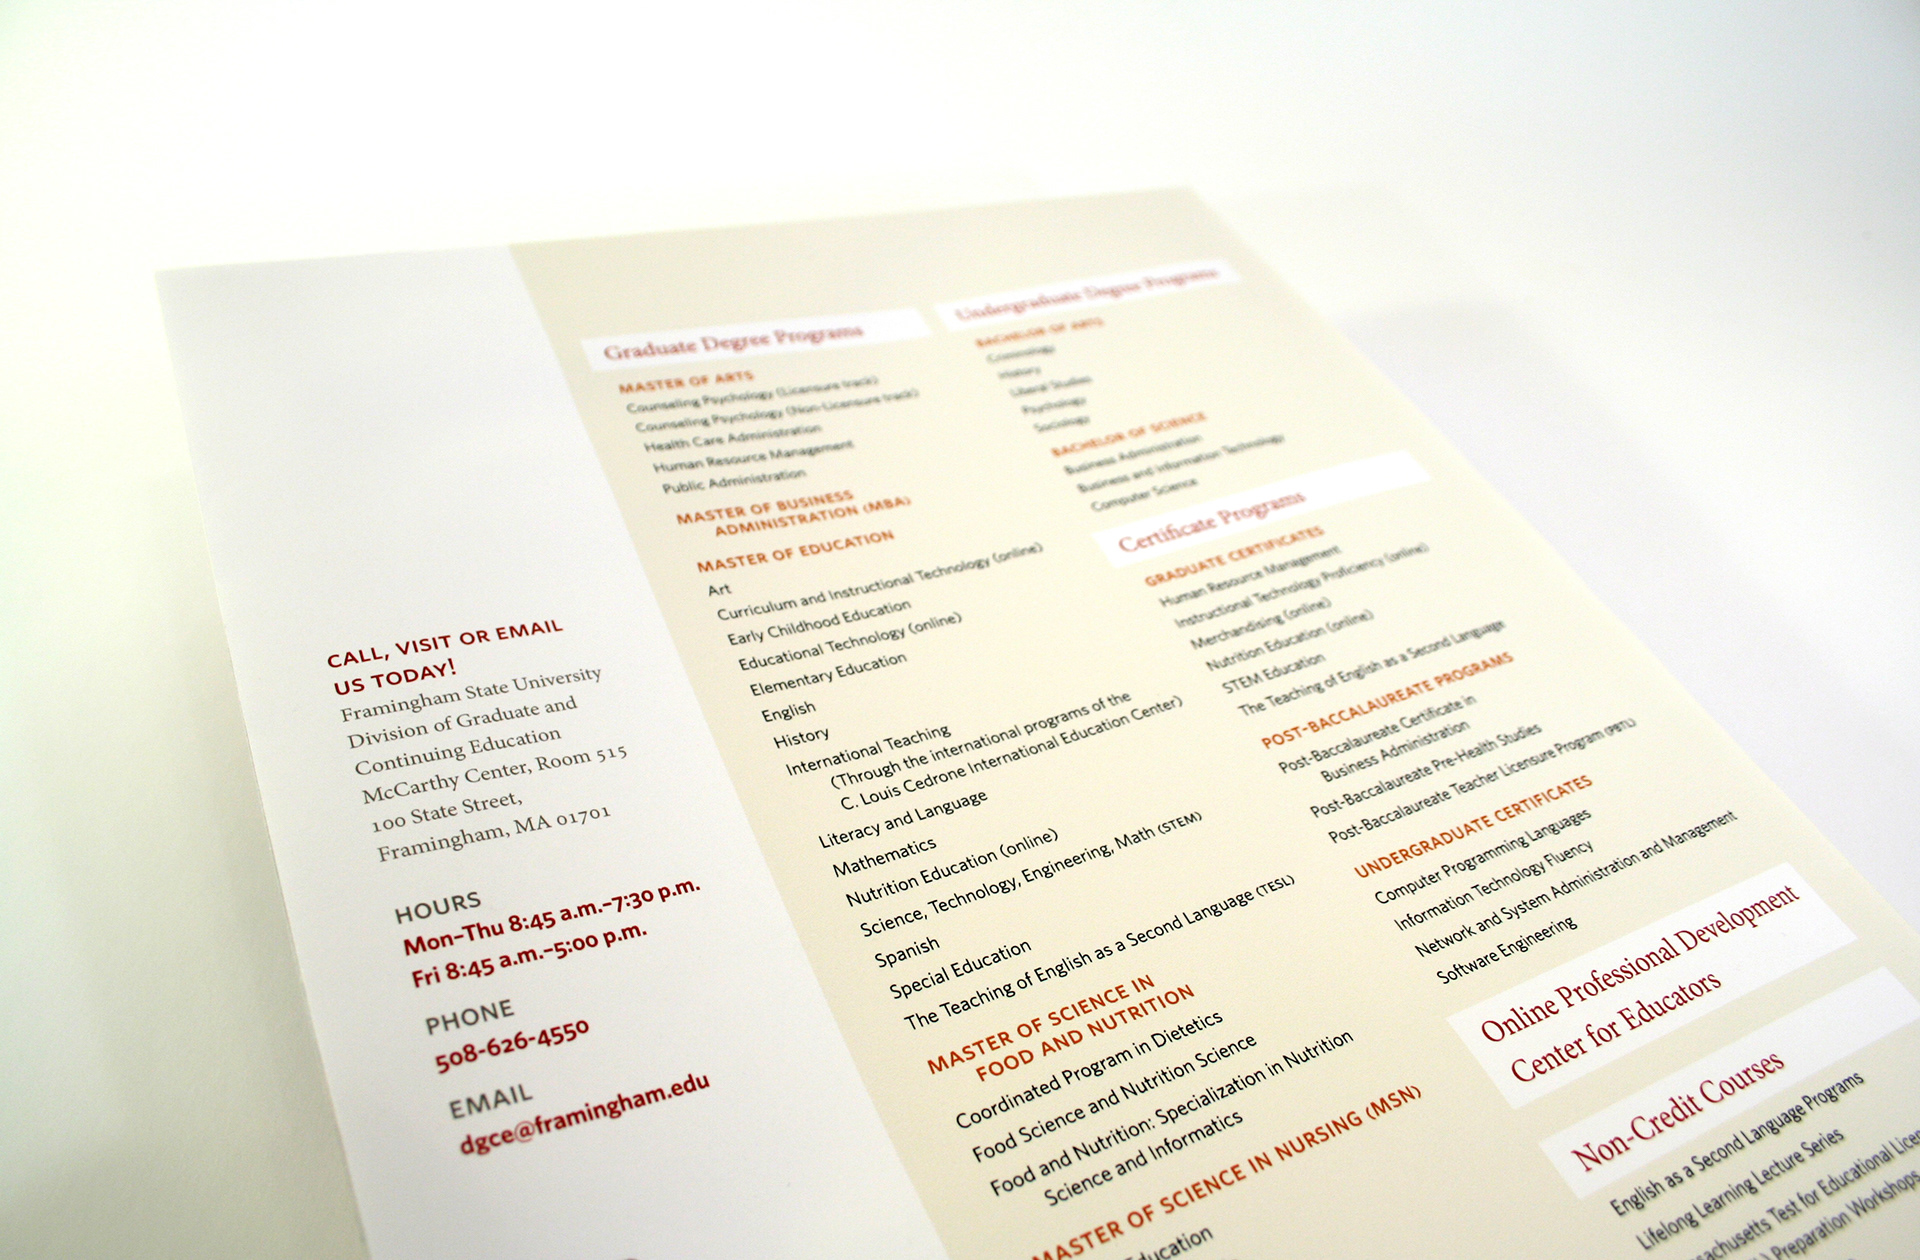 CALL, VISIT OR EMAIL
US TODAY!
Framingham State University
Division of Graduate and
Continuing Education
McCarthy Center, Room 515
100 State Street,
Framingham, MA 01701
HOURS
Mon–Thu 8:45 a.m.–7:30 p.m.
Fri 8:45 a.m.–5:00 p.m.
PHONE
508-626-4550
EMAIL
dgce@framingham.edu
Graduate Degree Programs
MASTER OF ARTS
Counseling Psychology (Licensure track)
Counseling Psychology (Non-Licensure track)
Health Care Administration
Human Resource Management
Public Administration
MASTER OF BUSINESS
ADMINISTRATION (MBA)
MASTER OF EDUCATION
Art
Curriculum and Instructional Technology (online)
Early Childhood Education
Educational Technology (online)
Elementary Education
English
History
International Teaching
(Through the international programs of the
C. Louis Cedrone International Education Center)
Literacy and Language
Mathematics
Nutrition Education (online)
Science, Technology, Engineering, Math (STEM)
Spanish
Special Education
The Teaching of English as a Second Language (TESL)
MASTER OF SCIENCE IN
FOOD AND NUTRITION
Coordinated Program in Dietetics
Food Science and Nutrition Science
Food and Nutrition: Specialization in Nutrition
Science and Informatics
MASTER OF SCIENCE IN NURSING (MSN)
Education
Undergraduate Degree Programs
BACHELOR OF ARTS
Criminology
History
Liberal Studies
Psychology
Sociology
BACHELOR OF SCIENCE
Business Administration
Business and Information Technology
Computer Science
Certificate Programs
GRADUATE CERTIFICATES
Human Resource Management
Instructional Technology Proficiency (online)
Merchandising (online)
Nutrition Education (online)
STEM Education
The Teaching of English as a Second Language
POST-BACCALAUREATE PROGRAMS
Post-Baccalaureate Certificate in
Business Administration
Post-Baccalaureate Pre-Health Studies
Post-Baccalaureate Teacher Licensure Program (PBTL)
UNDERGRADUATE CERTIFICATES
Computer Programming Languages
Information Technology Fluency
Network and System Administration and Management
Software Engineering
Online Professional Development
Center for Educators
Non-Credit Courses
English as a Second Language Programs
Lifelong Learning Lecture Series
Test for Educational
Preparation Workshops